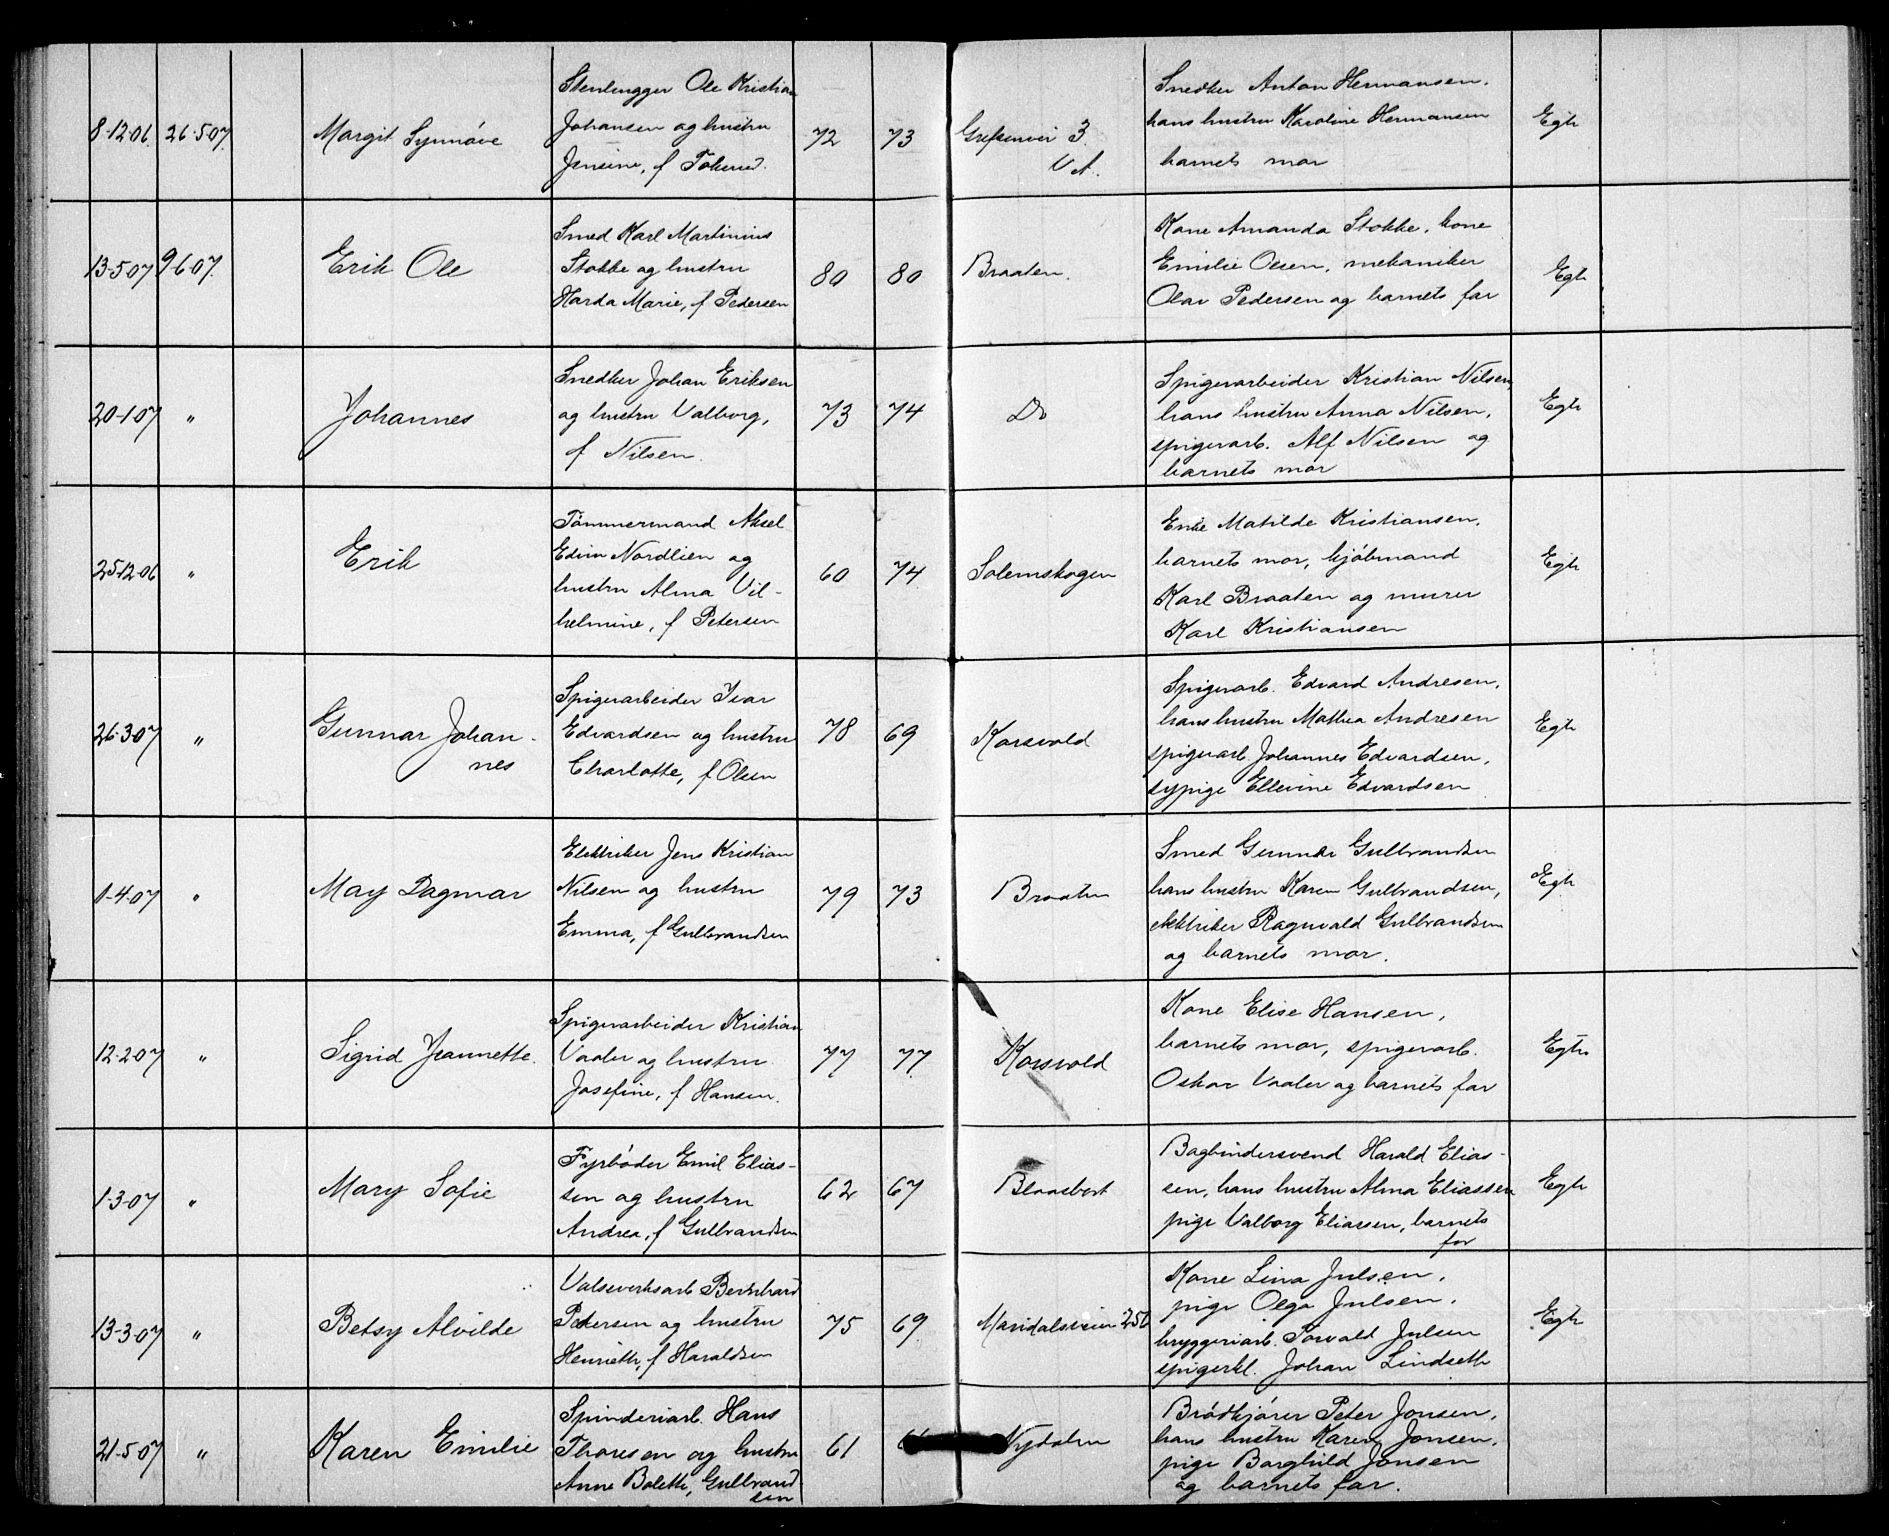 8-12-06. 26-5-07. Margit Synnöve
Stenhugger Ole Kristian
Johansen og hustru
Jensine, f
72 73
Grefsenvei 3.
V A.
Snedker Anton Hermansen,
hans hustru Karoline Hermansen
barnets mor
Egte
13-5-07 9-6-07. Erik Ole
Smed Karl Martinius
Stokke og hustru
Harda Marie, f Pedersen
80 80
Braaten.
Kone Amanda Stokke, kone
Emilie Olsen, mekaniker
Olav Pedersen og barnets far
Egte
20-1-07 " Johannes
Snedker Johan Eriksen
og hustru Valborg,
f Nilsen.
73 74
Do
Spigerarbeider Kristian Nilsen,
hans hustru Anna Nilsen,
spigerarb. Alf Nilsen og
barnets mor
Egte
25-12-06 " Erik
Tømmermand Aksel
Edvin Nordlien og
hustru Alma Vil-
helmine, f Petersen
60 74
Solemskogen
Enke Matilde Kristiansen,
barnets mor, kjöbmand
Karl Braaten og murer
Karl Kristiansen
Egte
26-3-07 " Gunnar Johan-
nes
Spigerarbeider Ivar
Edvardsen og hustru
Charlotte, f Olsen
78 69
Korsvold
Spigerarb. Edvard Andresen,
hans hustru Mathea Andresen
spigerarb. Johannes Edvardsen,
sypige Ellevine Edvardsen
Egte
1-4-07 " May Dagmar
Elektriker Jens Kristian
Nilsen og hustru
Emma, f Gulbrandsen
79 73
Braaten
Smed Gunnar Gulbrandsen
hans hustru Karen Gulbrandsen,
elektriker Ragnvald Gulbrandsen
og barnets mor.
Egte
12-2-07 " Sigrid Jeannette.
Spigerarbeider Kristian
Vaaler og hustru
Josefine, f Hansen.
77 77
Korsvold
Kone Elise Hansen,
barnets mor, spigerarb.
Oskar Vaaler og barnets far
Egte
1-3-07 " Mary Sofie
Fyrböder Emil Elias-
sen og hustru
Andrea, f Gulbrandsen
62 67
Blaasbort
Bogbindersvend Harald Elias-
sen, hans hustru Alma Eliassen
pige Valborg Eliassen, barnets
far
Egte
13-3-07 " Betsy Alvilde
Valseverksarb Bernhard
Pedersen og hustru
Henriette, f Haraldsen
75 69
Maridalsveien 250
Kone Lina Julsen,
pige Olga Julsen,
bryggeriarb. Torvald Julsen
spigerkl. Johan Lindseth
Egte
21-5-07 " Karen Emilie
Spinderiarb. Hans
Thoresen og hustru
Anne Bolette, Gulbrand
sen
61
Nydalen
Brödkjörer Peter Jonsen,
hans hustru Karen Jonsen,
pige Borghild Jonsen
og barnets far.